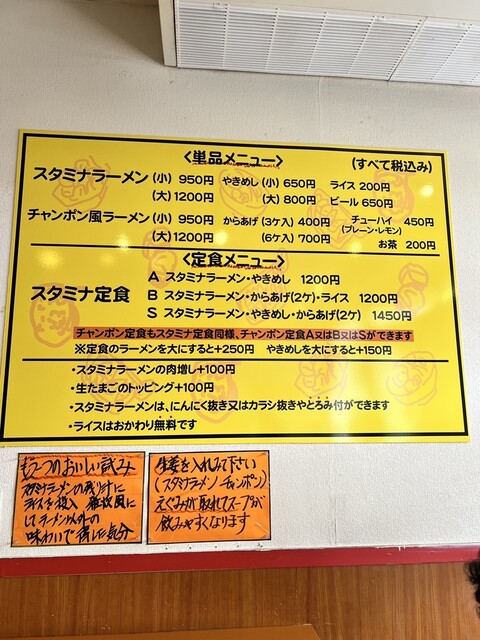 <単品メニュー> (すべて税込み)
スタミナラーメン (小) 950円 やきめし (小) 650円 ライス 200円
(大) 1200円 (大) 800円 ビール 650円
チャンポン風ラーメン (小) 950円 からあげ (3ケ入) 400円 チューハイ 450円
(プレーン・レモン)
(大) 1200円 (6ケ入) 700円 お茶 200円
<定食メニュー>
A スタミナラーメン・やきめし 1200円
スタミナ定食 B スタミナラーメン・からあげ(2ケ)・ライス 1200円
S スタミナラーメン・やきめし・からあげ(2ケ) 1450円
チャンポン定食もスタミナ定食同様、チャンポン定食A又はB又はSができます
※定食のラーメンを大にすると+250円 やきめしを大にすると+150円
・スタミナラーメンの肉増し+100円
・生たまごのトッピング+100円
・スタミナラーメンは、にんにく抜き又はカラシ抜きやとろみ付ができます
・ライスはおかわり無料です
もう一つのおいしい試み
スタミナラーメンの残り汁に
ライスを投入 雑炊風に
してラーメン以外の
味わいで得した気分
生姜を入れてみて下さい
(スタミナラーメン チャンポン)
えぐみが取れてスープが
飲みやすくなります